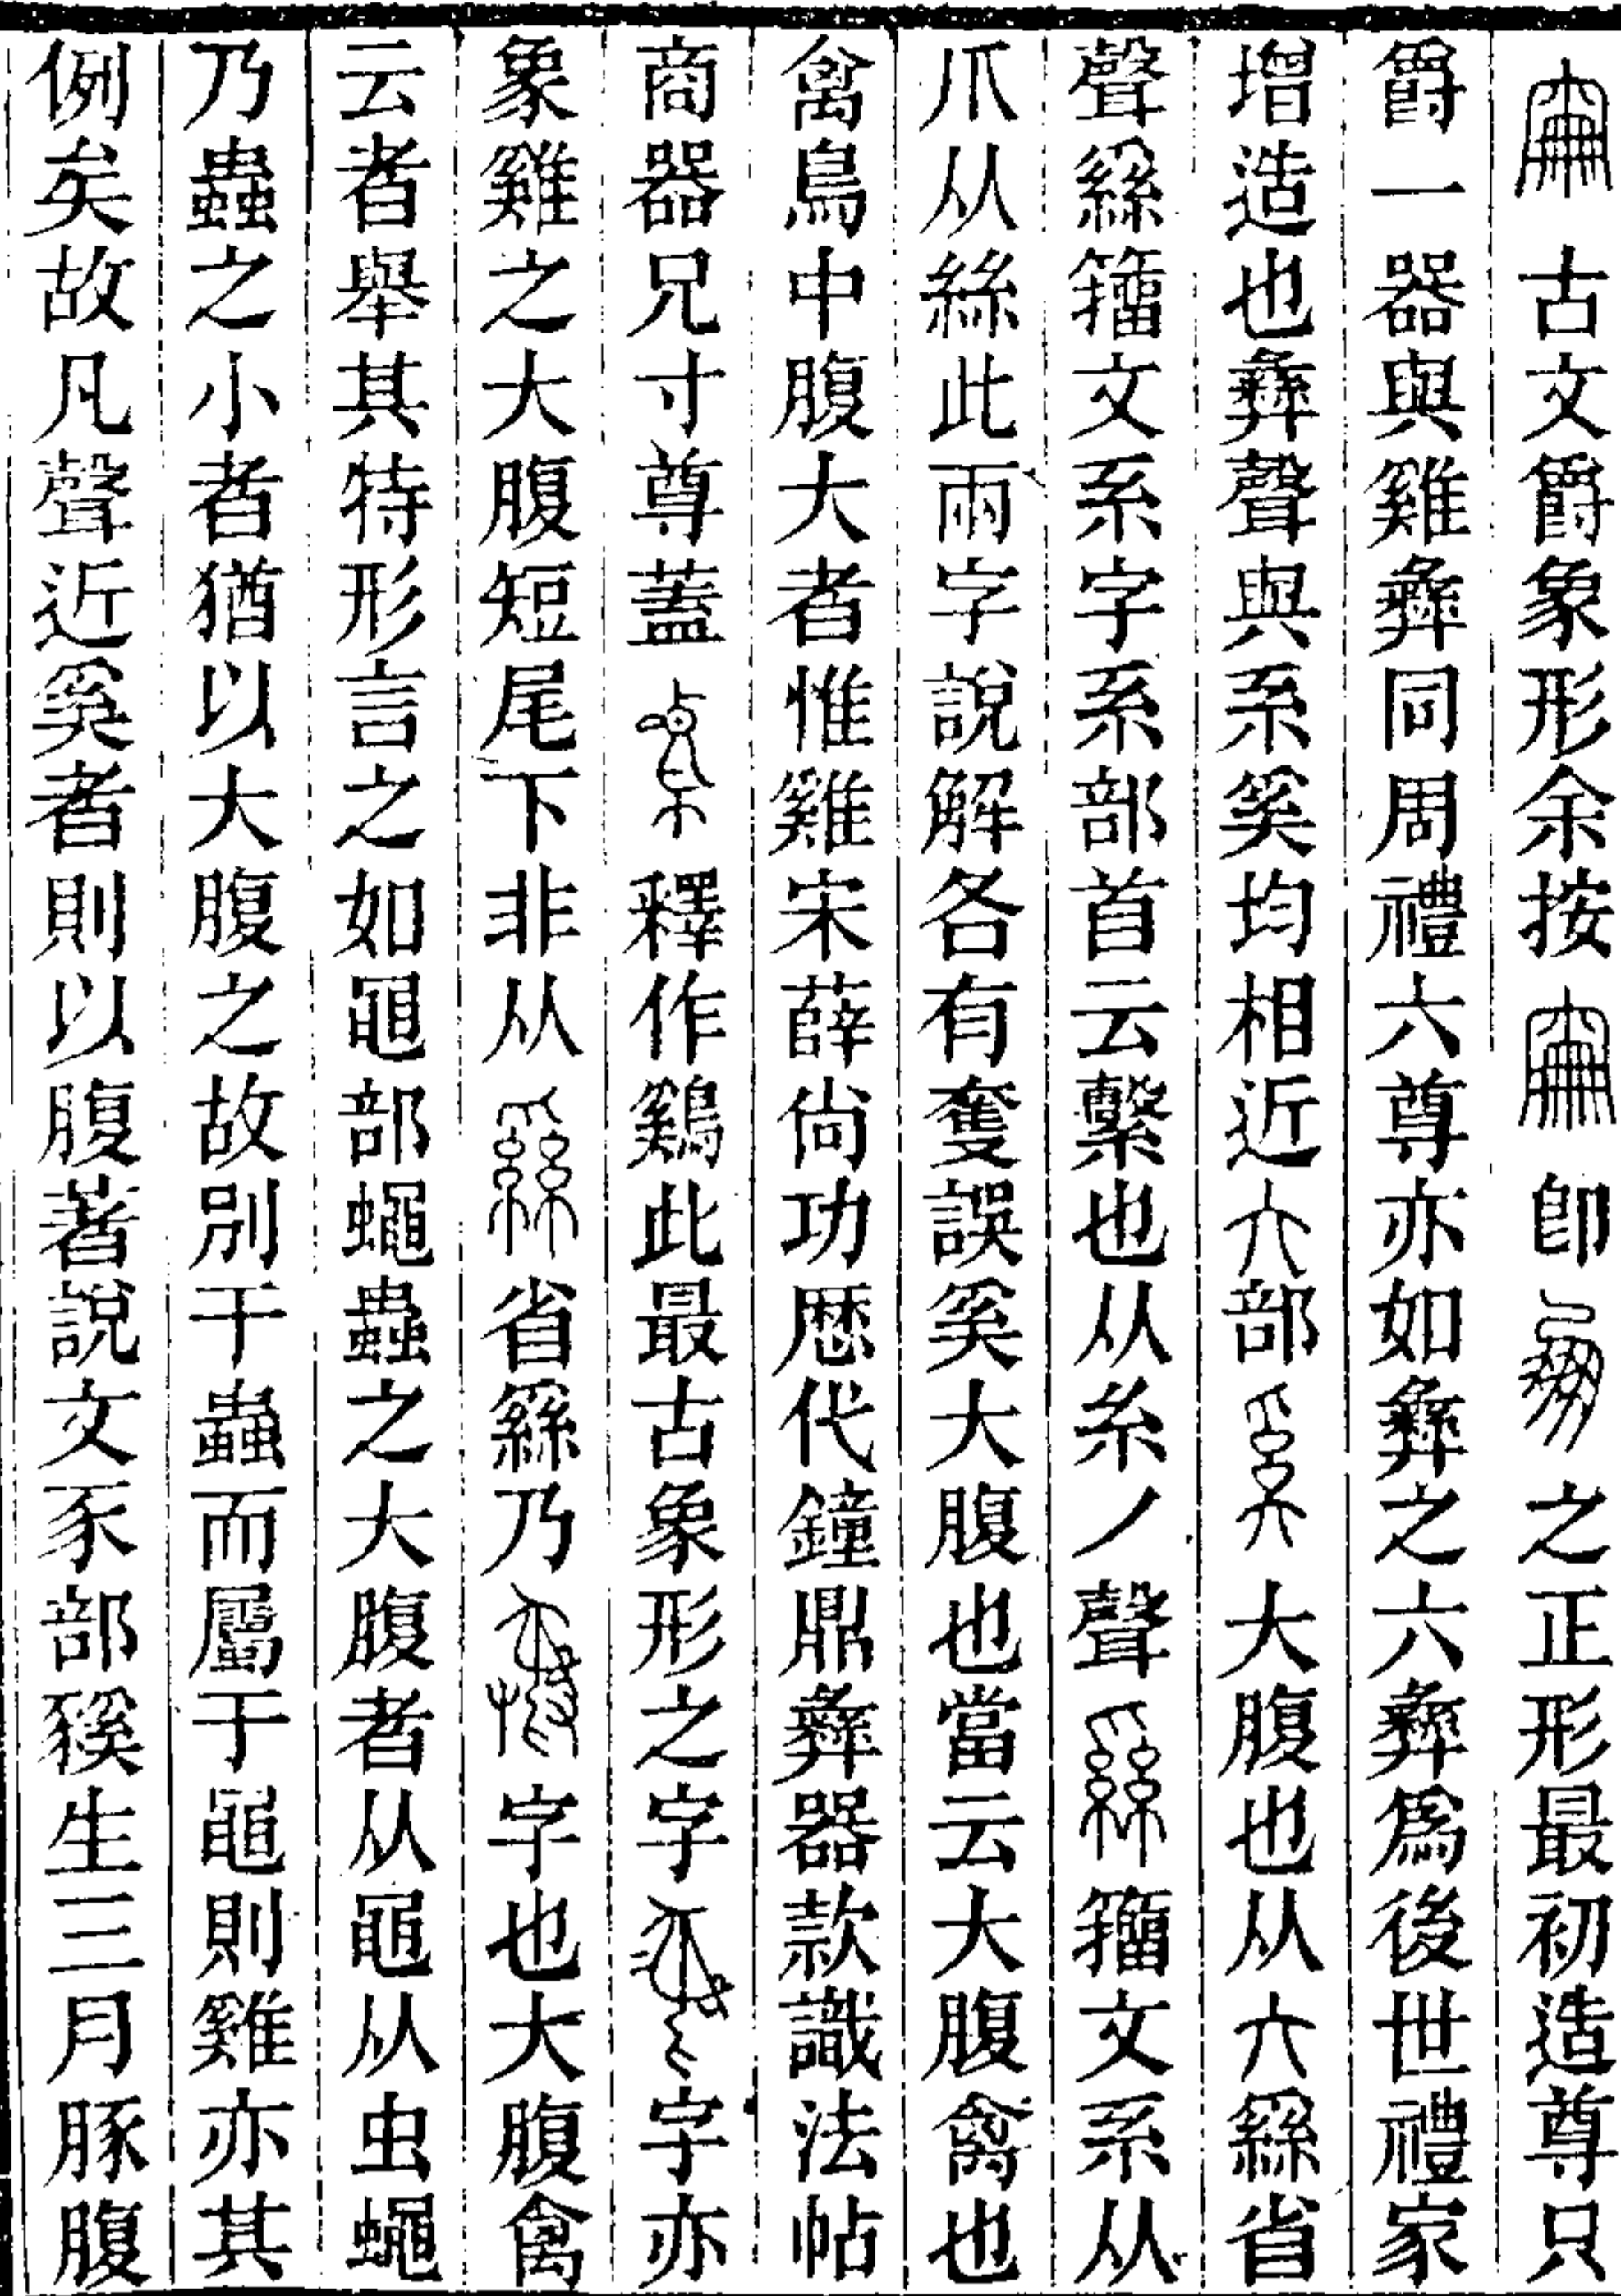 古文爵象形余按卽之正形最初造尊只
爵一器與雞彝同周禮六尊亦如彝之六彝爲後世禮家
增造也彝聲與系奚均相近亣部大腹也从亣䌛省
聲䌛籒文系字系部首云繫也从糸丿聲籒文系从
爪从絲此兩字說解各有奪誤奚大腹也當云大腹禽也
禽鳥中腹大者惟雞宋薛尙功歷代鐘鼎彝器款識法帖
商器兄寸尊蓋釋作鷄此最古象形之字字亦
象雞之大腹短尾下非从省䌛乃字也大腹禽
云者舉其特形言之如黽部蠅蟲之大腹者从黽从虫蠅
乃蟲之小者猶以大腹之故別于蟲而屬于黽則雞亦其
例矣故凡聲近奚者則以腹著說文豕部豯生三月豚腹